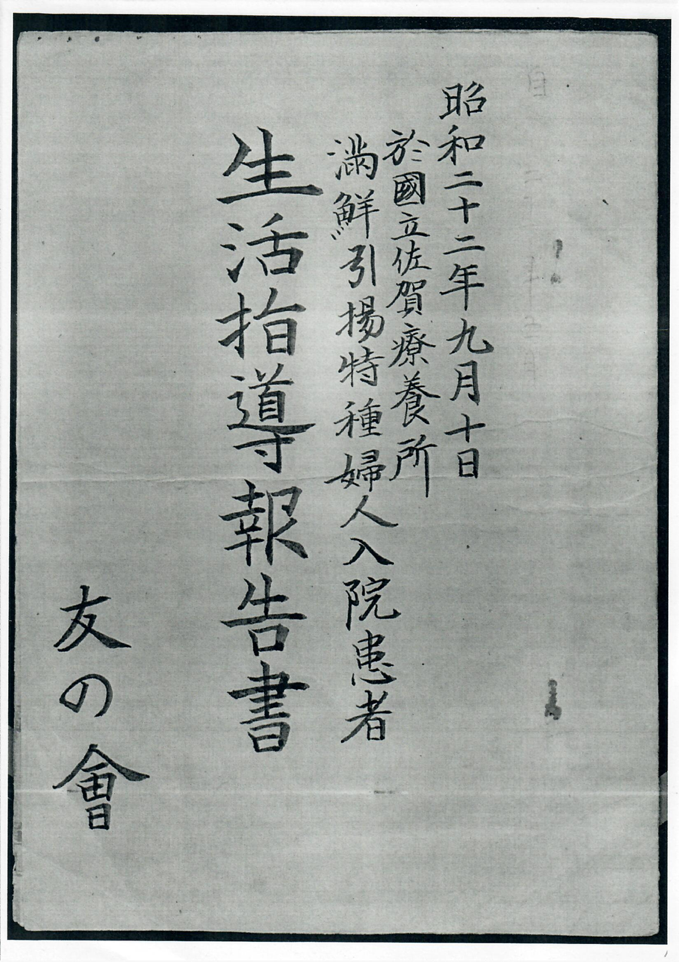 昭和二十二年九月十日
於國立佐賀療養所
滿鮮引揚特種婦人入院患者
生活指導報告書
友の會